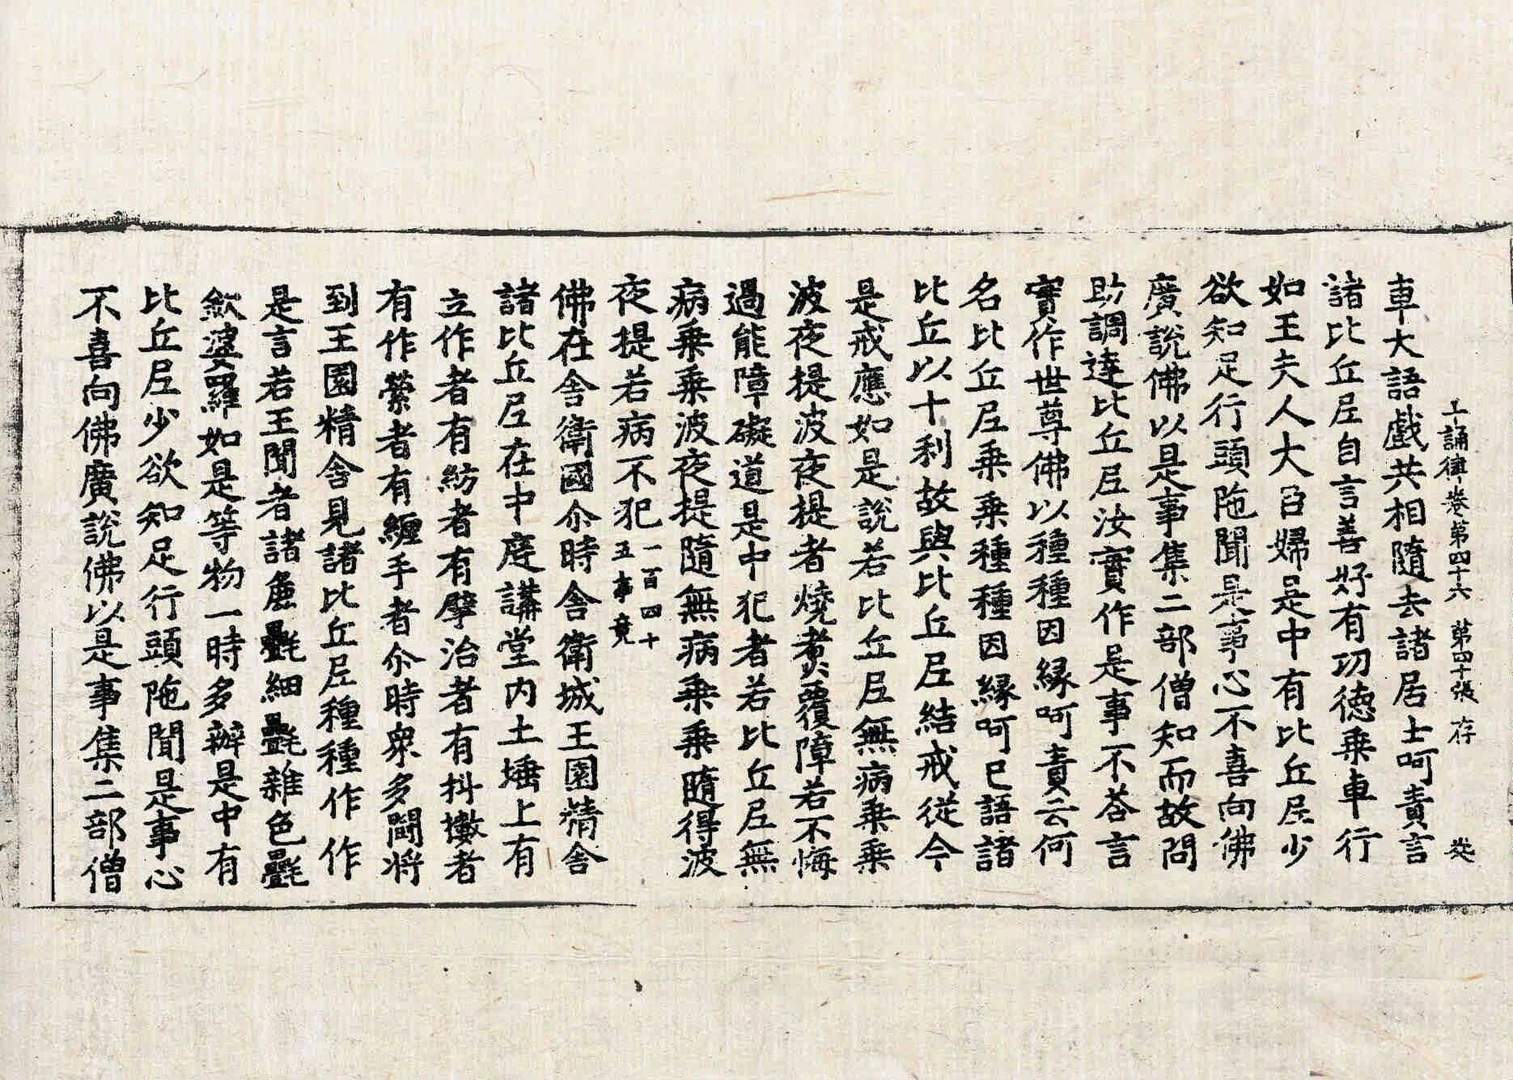 十誦律卷第四十六 第四十張 存
車大語戲共相隨去諸居士呵責言
諸比丘尼自言善好有功德乘車行
如王夫人大臣婦是中有比丘尼少
欲知足行頭陁聞是事心不喜向佛
廣說佛以是事集二部僧知而故問
助調達比丘尼汝實作是事不荅言
實作世尊佛以種種因緣呵責云何
名比丘尼乘乘種種因緣呵已語諸
比丘以十利故與比丘尼結戒從今
是戒應如是說若比丘尼無病乘乘
波夜提波夜提者燒煑覆障若不悔
過能障礙道是中犯者若比丘尼無
病乘乘波夜提隨無病乘乘隨得波
夜提若病不犯一百四十五事竟
佛在舍衛國尒時舍衛城王園精舍
諸比丘尼在中庭講堂內土埵上有
立作者有紡者有擘治者有抖擻者
有作縈者有纏手者尒時衆多閙將
到王園精舍見諸比丘尼種種作作
是言若王聞者諸麁㲲細㲲雜色㲲
歛婆羅如是等物一時多辦是中有
比丘尼少欲知足行頭陁聞是事心
不喜向佛廣說佛以是事集二部僧